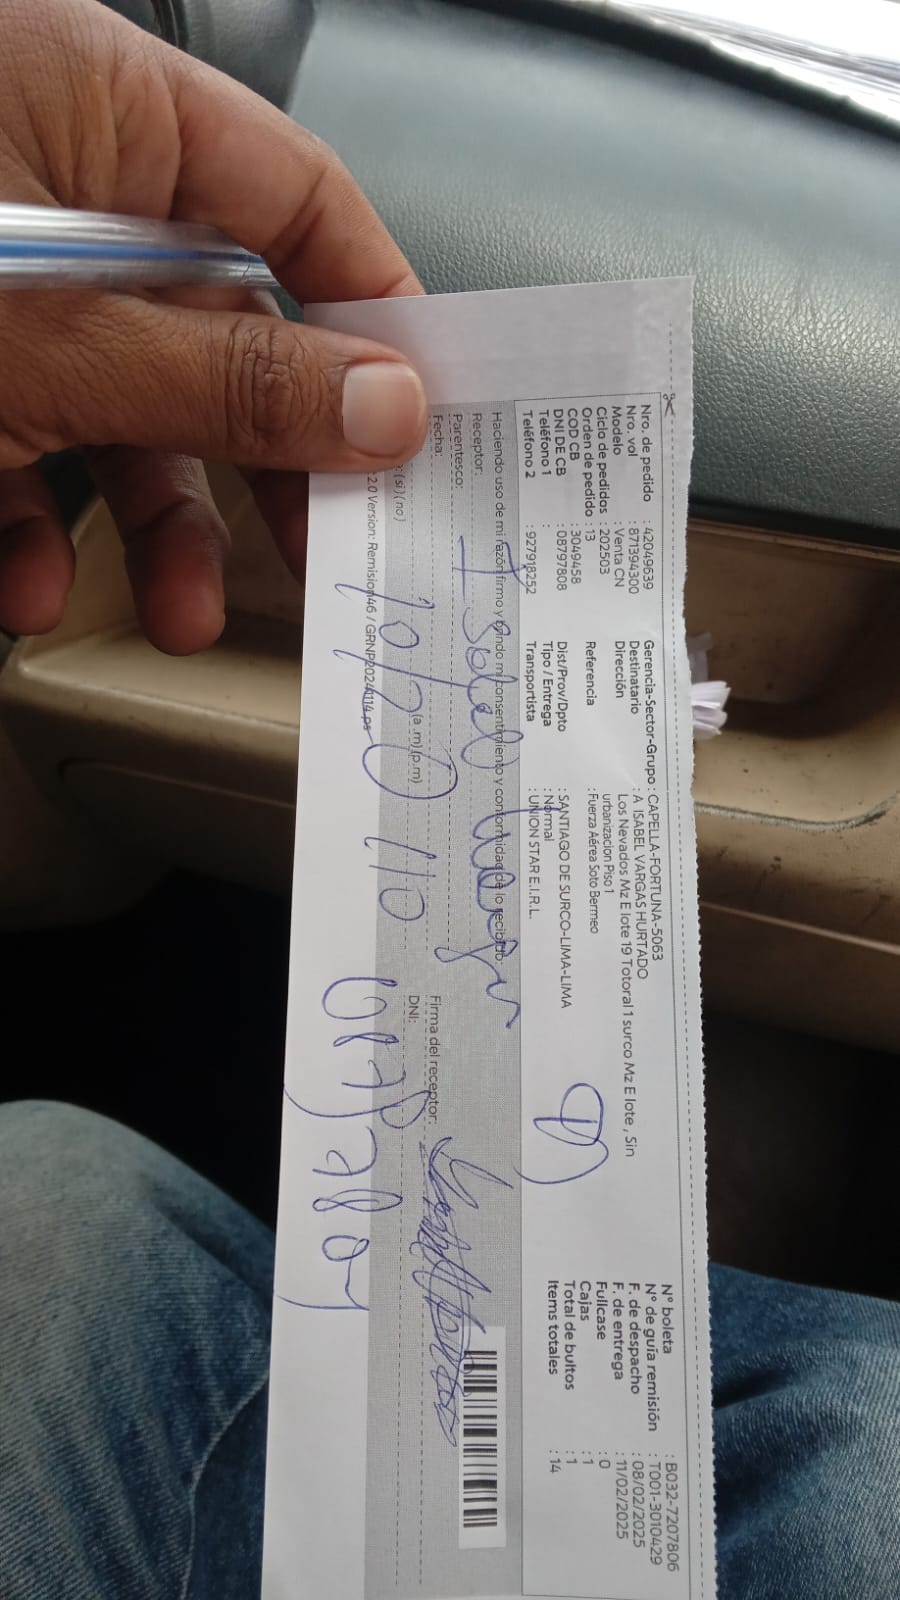 Nro. de pedido : 42049639
Nro. vol : 871394300
Modelo : Venta CN
Ciclo de pedidos : 202503
Orden de pedido : 13
COD CB : 3049458
DNI DE CB : 08797808
Teléfono 1 :
Teléfono 2 : 927918252
Gerencia-Sector-Grupo : CAPELLA-FORTUNA-5063
Destinatario : A ISABEL VARGAS HURTADO
Dirección : Los Nevados Mz E lote 19 Totoral 1 surco Mz E lote , Sin
urbanizacion Piso 1
Referencia : Fuerza Aérea Soto Bermeo
Dist/Prov/Dpto : SANTIAGO DE SURCO-LIMA-LIMA
Tipo / Entrega : Normal
Transportista : UNION STAR E.I.R.L.
N° boleta : B032-7207806
N° de guía remisión : T001-3010429
F. de despacho : 08/02/2025
F. de entrega : 11/02/2025
Fullcase : 0
Cajas : 1
Total de bultos : 1
Items totales : 14
Haciendo uso de mi razón firmo y brindo mi consentimiento y conformidad de lo recibido:
Receptor:
Parentesco:
Fecha: (a.m)(p.m)
Firma del receptor:
DNI:
(si)(no)
2.0 Version: Remision46 / GRNP20240114.ps